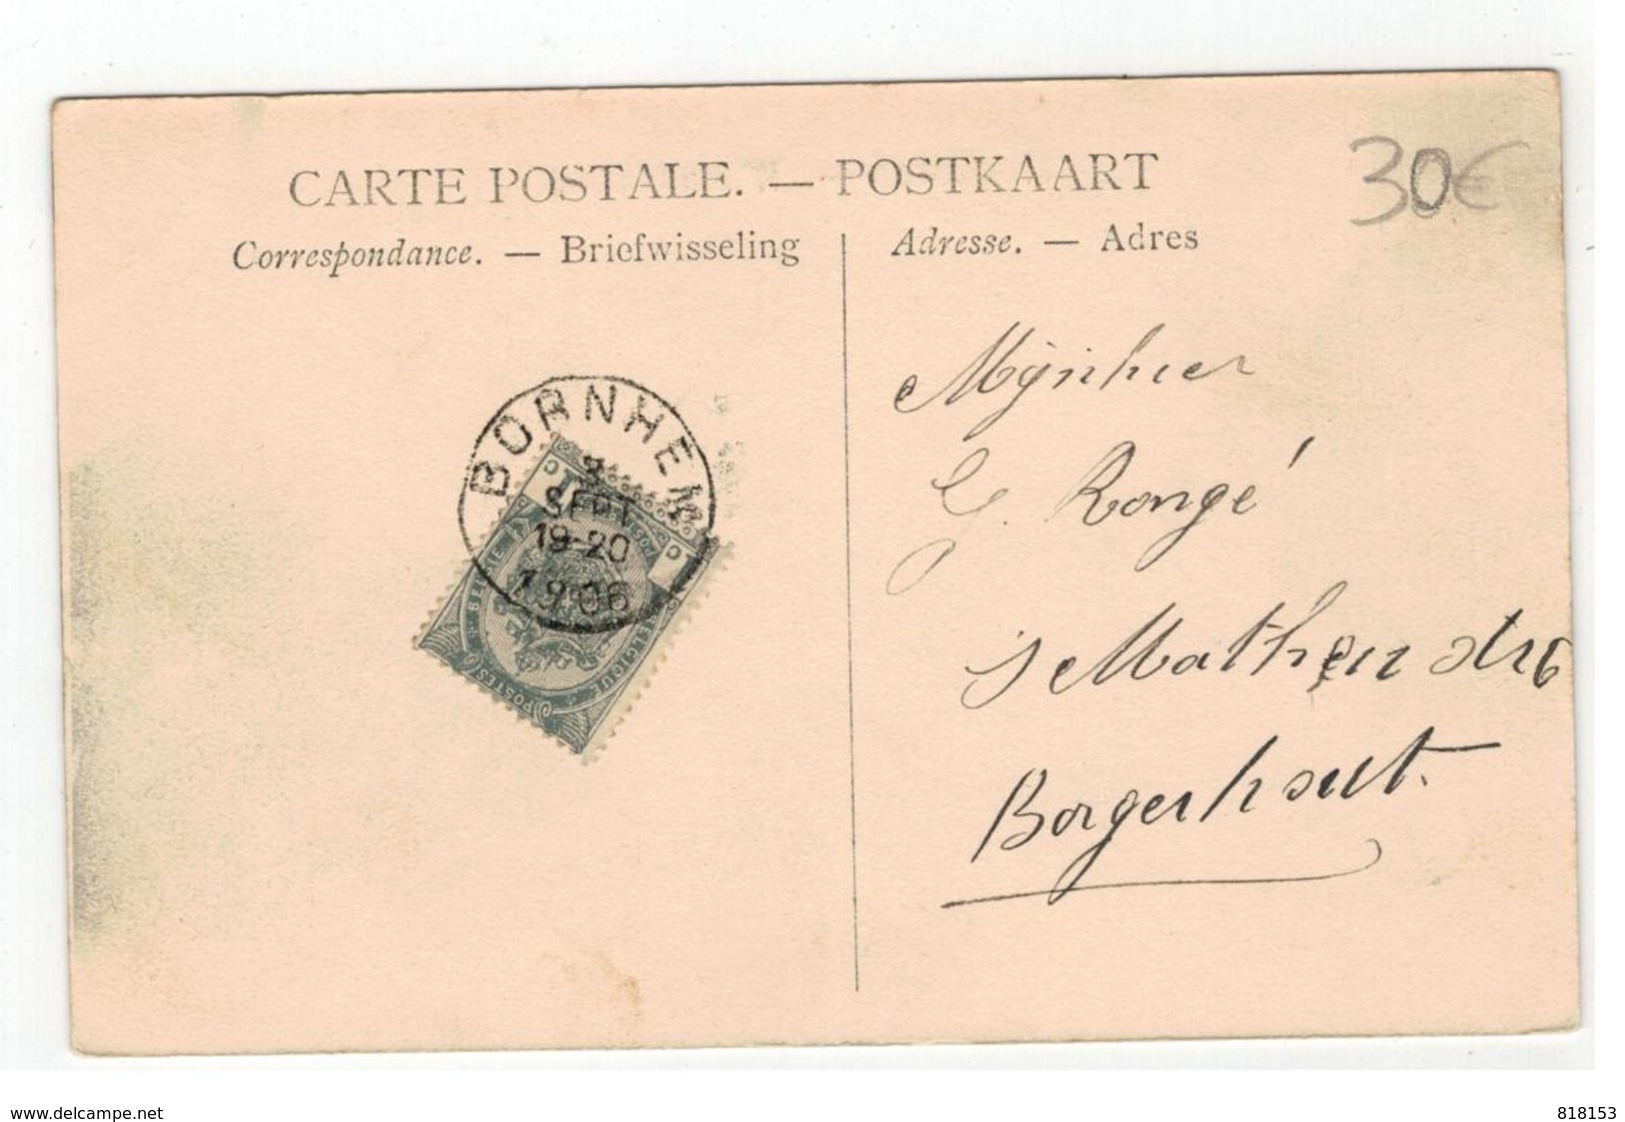 CARTE POSTALE. — POSTKAART
30€
Correspondance. — Briefwisseling
Adresse. — Adres
BORNHEM
3
SEPT
19-20
1906
POSTES
BELGIQUE
BELGIE
1
Mijnher
G. Rongé
Borgerhout.
www.delcampe.net
818153